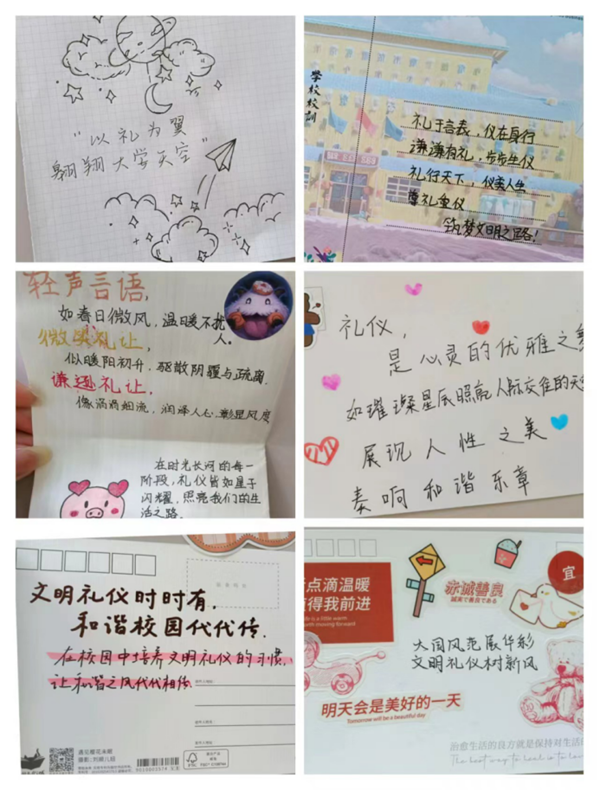 “以礼为翼
翱翔大学天空”
学校校训
礼于言表，仪在身行
谦谦有礼，步步生仪
礼行天下，仪美人生
尊礼重仪
筑梦文明之路！
轻声言语，
如春日微风，温暖不扰人。
微笑礼让，
似暖阳初升，驱散阴霾与疏离.
谦逊礼让，
像涓涓细流，润泽人心，彰显风度
在时光长河的每一
阶段，礼仪皆如星子
闪耀，照亮我们的生
活之路
礼仪，
是心灵的优雅之
如璀璨星辰照亮人际交往的天
展现人性之美
奏响和谐乐章
文明礼仪时时有，
和谐校园代代传.
在校园中培养文明礼仪的习惯，
让和谐之风代代相传
遇见樱花未眠
点滴温暖
得我前进
赤诚善良
宜
大国风范展华彩
文明礼仪树新风
明天会是美好的一天
Tomorrow will be a beautiful day
治愈生活的良方就是保持对生活
The best way to heal is to